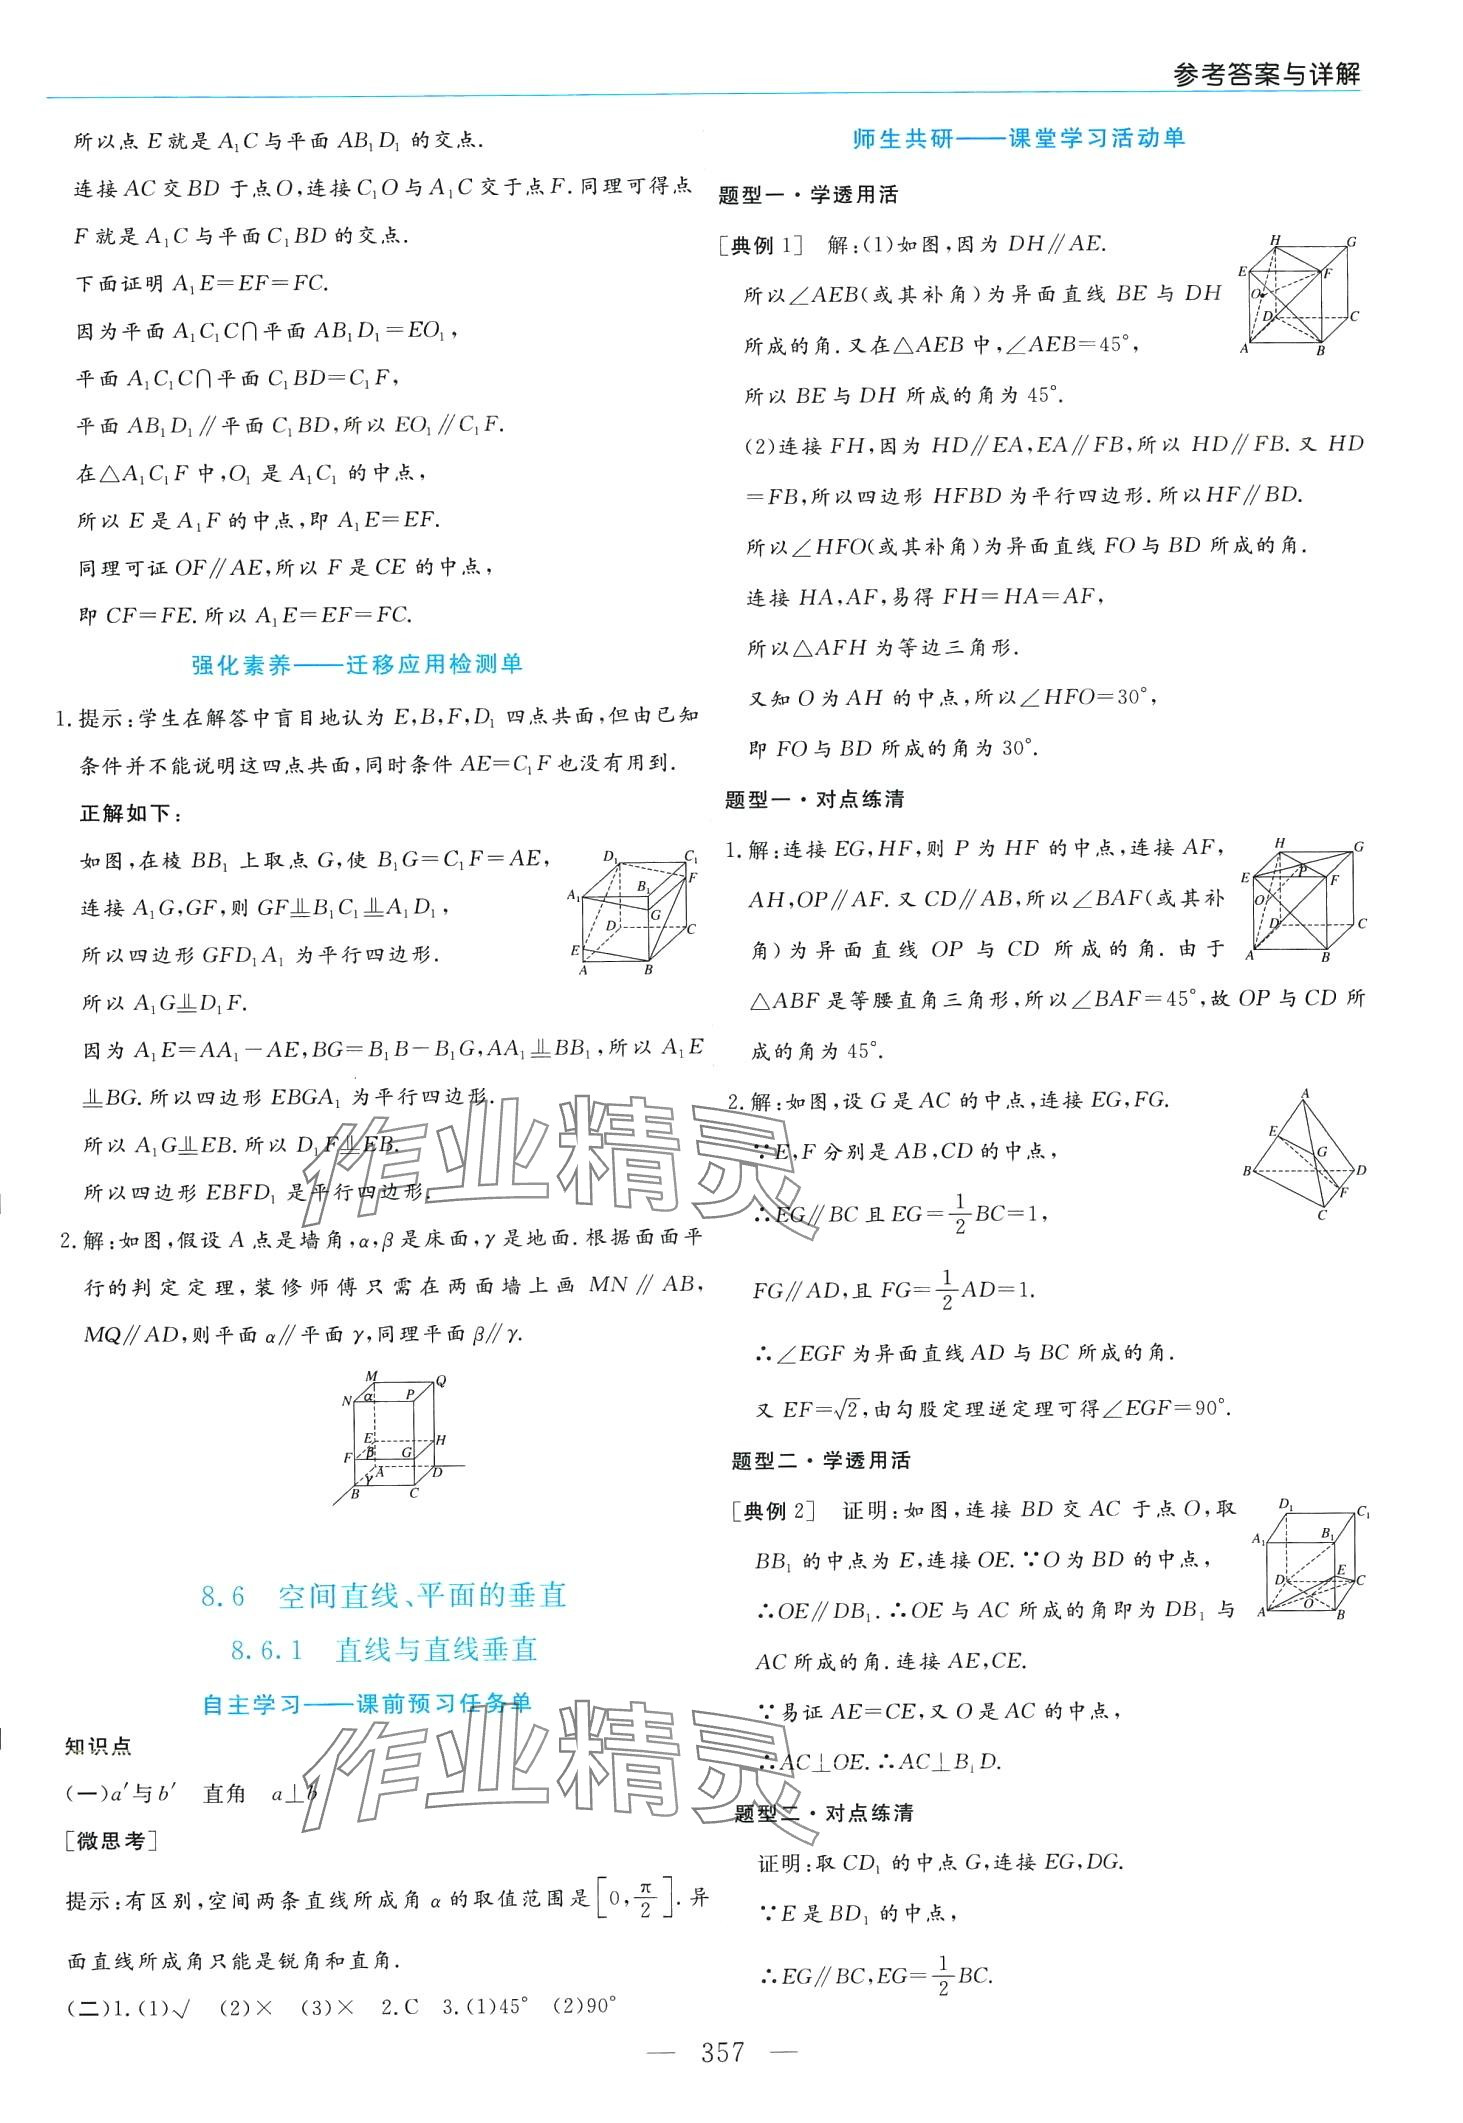 参考答案与详解
所以点E就是A₁C与平面AB₁D₁的交点.
连接AC交BD于点O,连接C₁O与A₁C交于点F.同理可得点
F就是A₁C与平面C₁BD的交点.
下面证明A₁E=EF=FC.
因为平面A₁C₁C∩平面AB₁D₁=EO₁,
平面A₁C₁C∩平面C₁BD=C₁F,
平面AB₁D₁∥平面C₁BD,所以EO₁∥C₁F.
在△A₁C₁F中,O₁是A₁C₁的中点,
所以E是A₁F的中点,即A₁E=EF.
同理可证OF∥AE,所以F是CE的中点,
即CF=FE.所以A₁E=EF=FC.
强化素养——迁移应用检测单
1.提示:学生在解答中盲目地认为E,B,F,D₁四点共面,但由已知
条件并不能说明这四点共面,同时条件AE=C₁F也没有用到.
正解如下:
如图,在棱BB₁上取点G,使B₁G=C₁F=AE,
连接A₁G,GF,则GF⫫B₁C₁⫫A₁D₁,
所以四边形GFD₁A₁为平行四边形.
所以A₁G⫫D₁F.
因为A₁E=AA₁-AE,BG=B₁B-B₁G,AA₁⫫BB₁,所以A₁E
⫫BG.所以四边形EBGA₁为平行四边形.
所以A₁G⫫EB.所以D₁F⫫EB.
所以四边形EBFD₁是平行四边形.
D₁ C₁ A₁ B₁ F G D C E A B
2.解:如图,假设A点是墙角,α,β是床面,γ是地面.根据面面平
行的判定定理,装修师傅只需在两面墙上画MN∥AB,
MQ∥AD,则平面α∥平面γ,同理平面β∥γ.
M Q N α P E H F β G A D γ B C
8.6 空间直线、平面的垂直
8.6.1 直线与直线垂直
自主学习——课前预习任务单
知识点
(一)a′与b′ 直角 a⊥b
[微思考]
提示:有区别,空间两条直线所成角α的取值范围是[0,π/2].异
面直线所成角只能是锐角和直角.
(二)1.(1)√ (2)× (3)× 2.C 3.(1)45° (2)90°
师生共研——课堂学习活动单
题型一·学透用活
[典例1] 解:(1)如图,因为DH∥AE.
所以∠AEB(或其补角)为异面直线BE与DH
所成的角.又在△AEB中,∠AEB=45°,
所以BE与DH所成的角为45°.
H G E F O D C A B
(2)连接FH,因为HD∥EA,EA∥FB,所以HD∥FB.又HD
=FB,所以四边形HFBD为平行四边形.所以HF∥BD.
所以∠HFO(或其补角)为异面直线FO与BD所成的角.
连接HA,AF,易得FH=HA=AF,
所以△AFH为等边三角形.
又知O为AH的中点,所以∠HFO=30°,
即FO与BD所成的角为30°.
题型一·对点练清
1.解:连接EG,HF,则P为HF的中点,连接AF,
AH,OP∥AF.又CD∥AB,所以∠BAF(或其补
角)为异面直线OP与CD所成的角.由于
△ABF是等腰直角三角形,所以∠BAF=45°,故OP与CD所
成的角为45°.
H G E P F O D C A B
2.解:如图,设G是AC的中点,连接EG,FG.
∵E,F分别是AB,CD的中点,
∴EG∥BC且EG=1/2BC=1,
FG∥AD,且FG=1/2AD=1.
∴∠EGF为异面直线AD与BC所成的角.
又EF=√2,由勾股定理逆定理可得∠EGF=90°.
A E G B D F C
题型二·学透用活
[典例2] 证明:如图,连接BD交AC于点O,取
BB₁的中点为E,连接OE.∵O为BD的中点,
∴OE∥DB₁.∴OE与AC所成的角即为DB₁与
AC所成的角.连接AE,CE.
∵易证AE=CE,又O是AC的中点,
∴AC⊥OE.∴AC⊥B₁D.
D₁ C₁ A₁ B₁ D E C O A B
题型二·对点练清
证明:取CD₁的中点G,连接EG,DG.
∵E是BD₁的中点,
∴EG∥BC,EG=1/2BC.
作业精灵
作业精灵
— 357 —